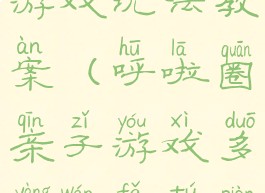 游戏玩法教
àn hū lā quān
案(呼啦圈
qīn zǐ yóu xì duō
亲子游戏多